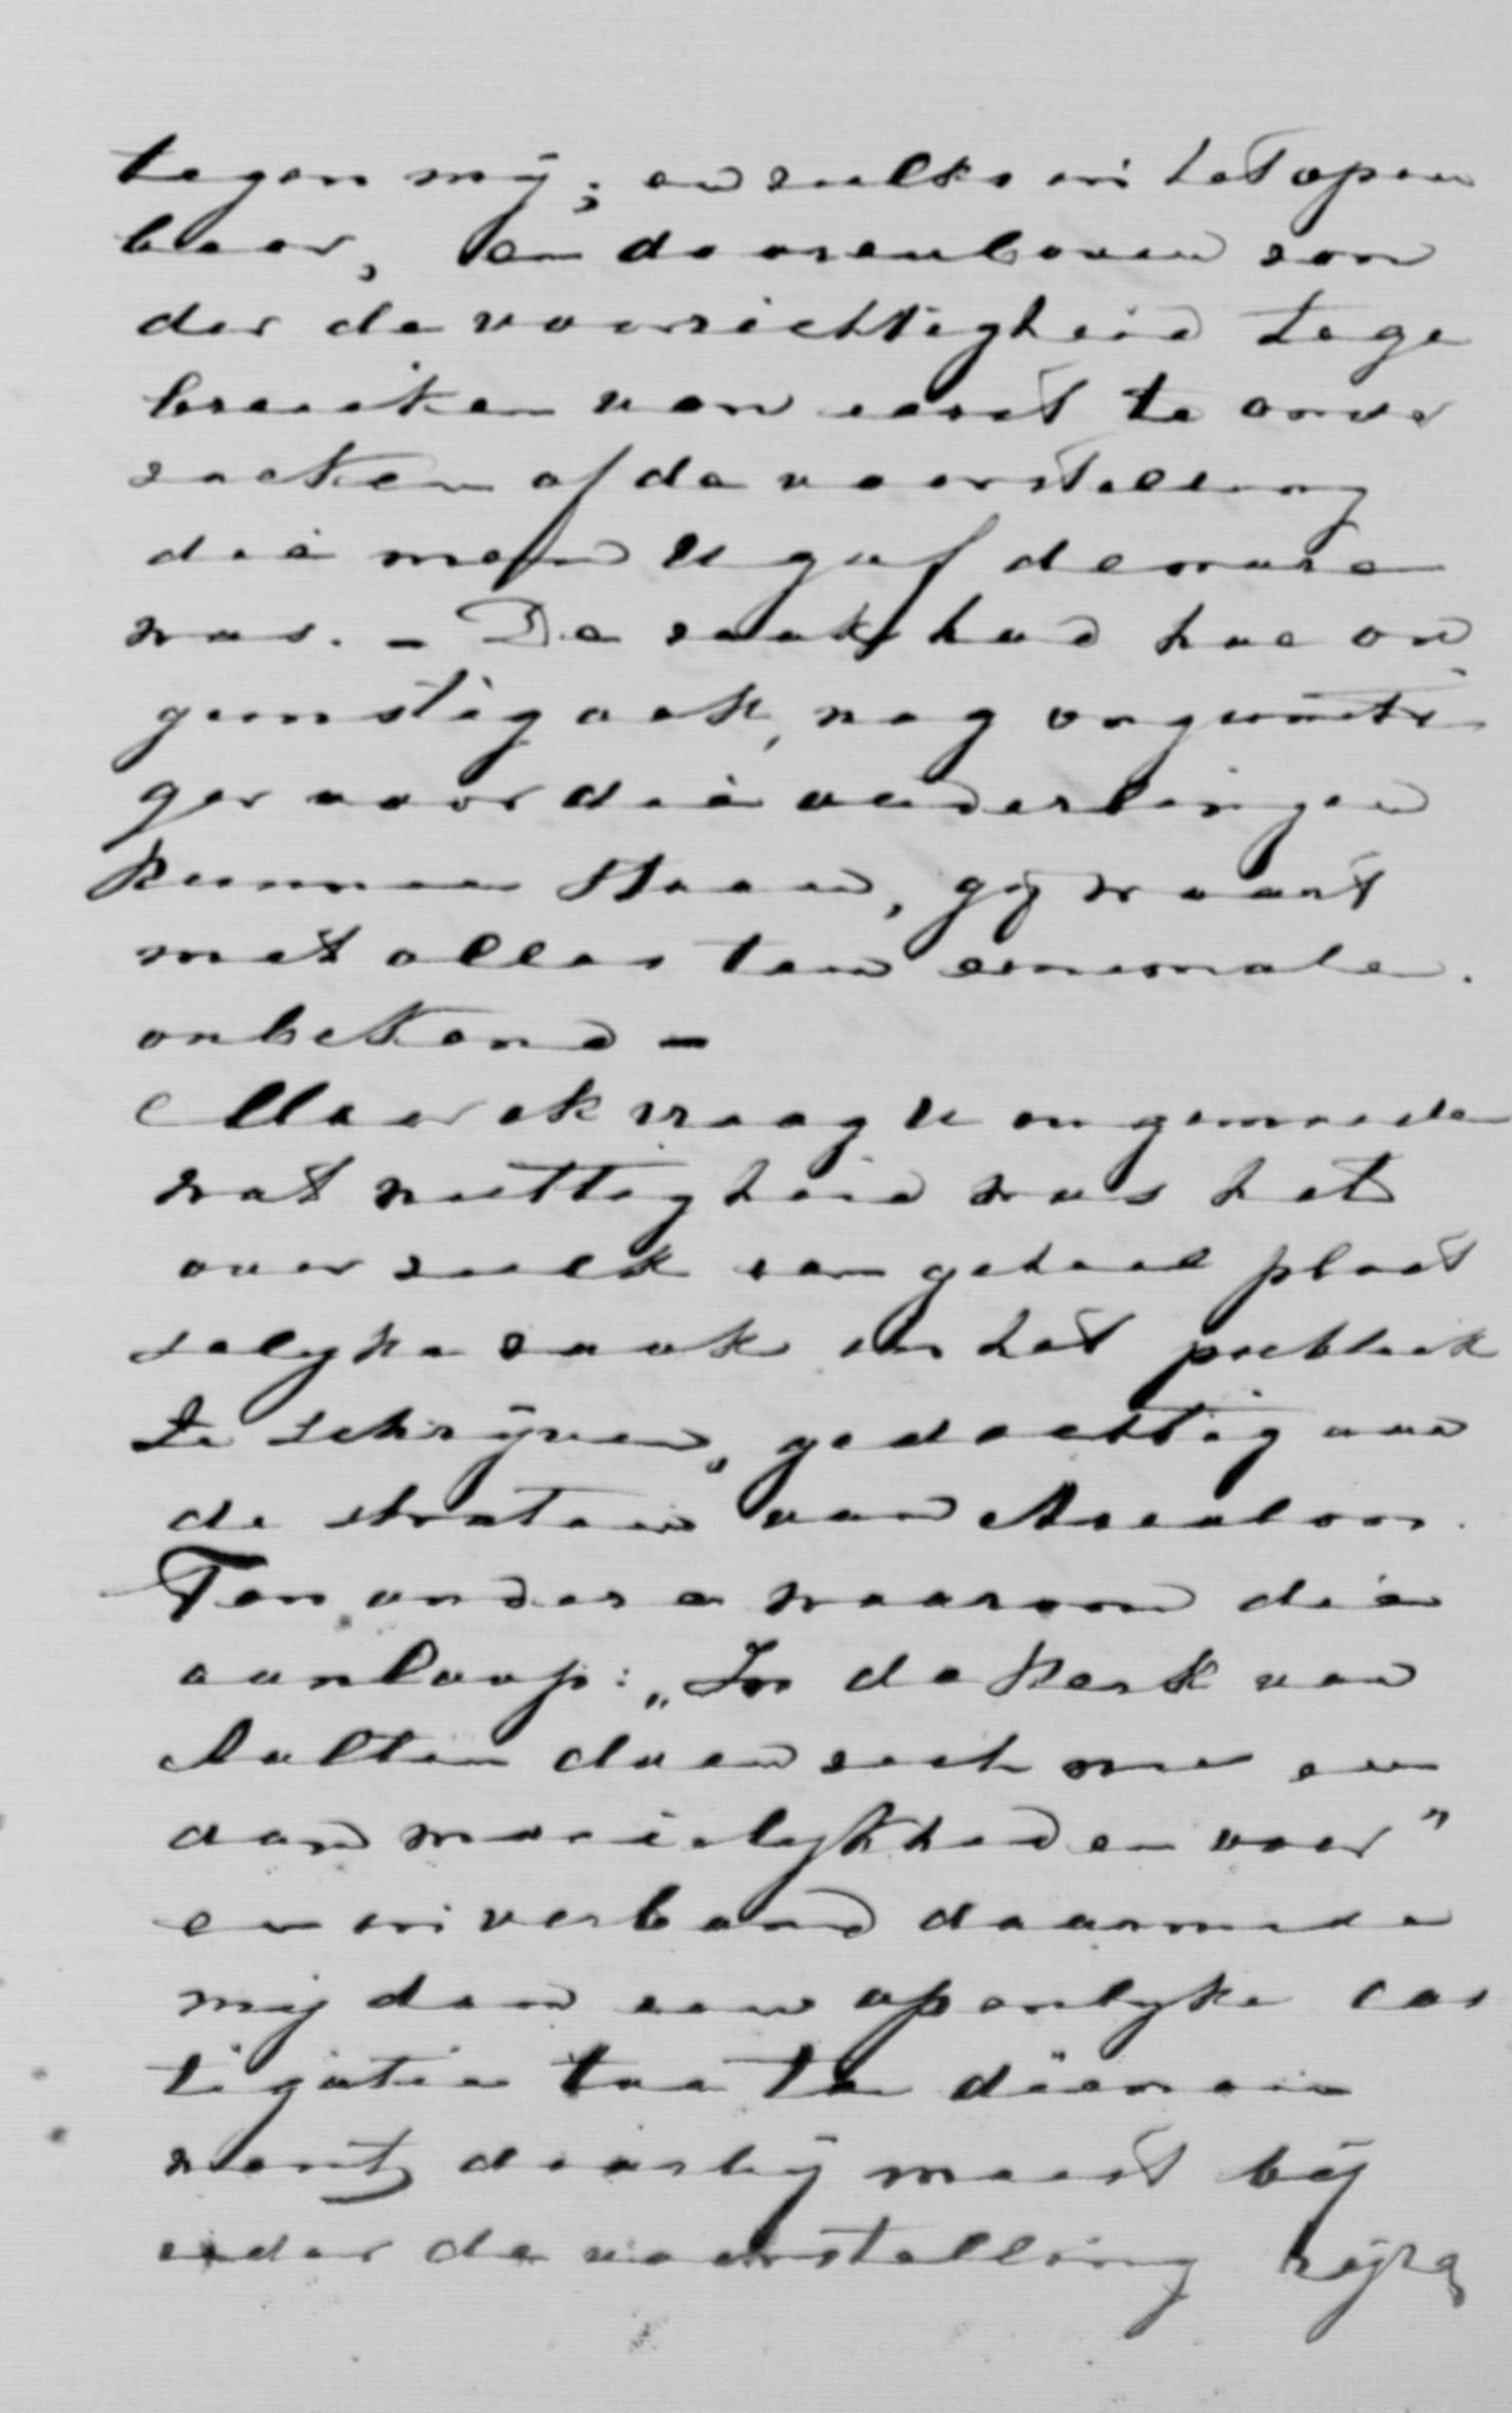 tegen mij; en zulks in het open
baar, en daarenboven zon
der de voorzichtigheid te ge
bruiken van eerst te onder
zoeken of de voorstelling
die men U gaf de ware
was. - De zaak had hoe on
gunstig ook, nog ongunsti
ger voor die ouderlingen
kunnen staan, gij waart
met alles ten eenemale
onbekend -
Maar ik vraag U in gemoede
wat nuttigheid was het
over zulk een geheel plaat
selyke zaak in het publiek
te schrijven, gedachtig aan
de straten van Ascalon.
Ten andere waarom die
aanloop: „In de kerk van
Aalten doen zich nu en
dan moeielykheden voor”
en in verband daarmede
mij dan een openlyke cas
tigatie toe te dienen
want daarbij moest bij
ieder de voorstelling rijze